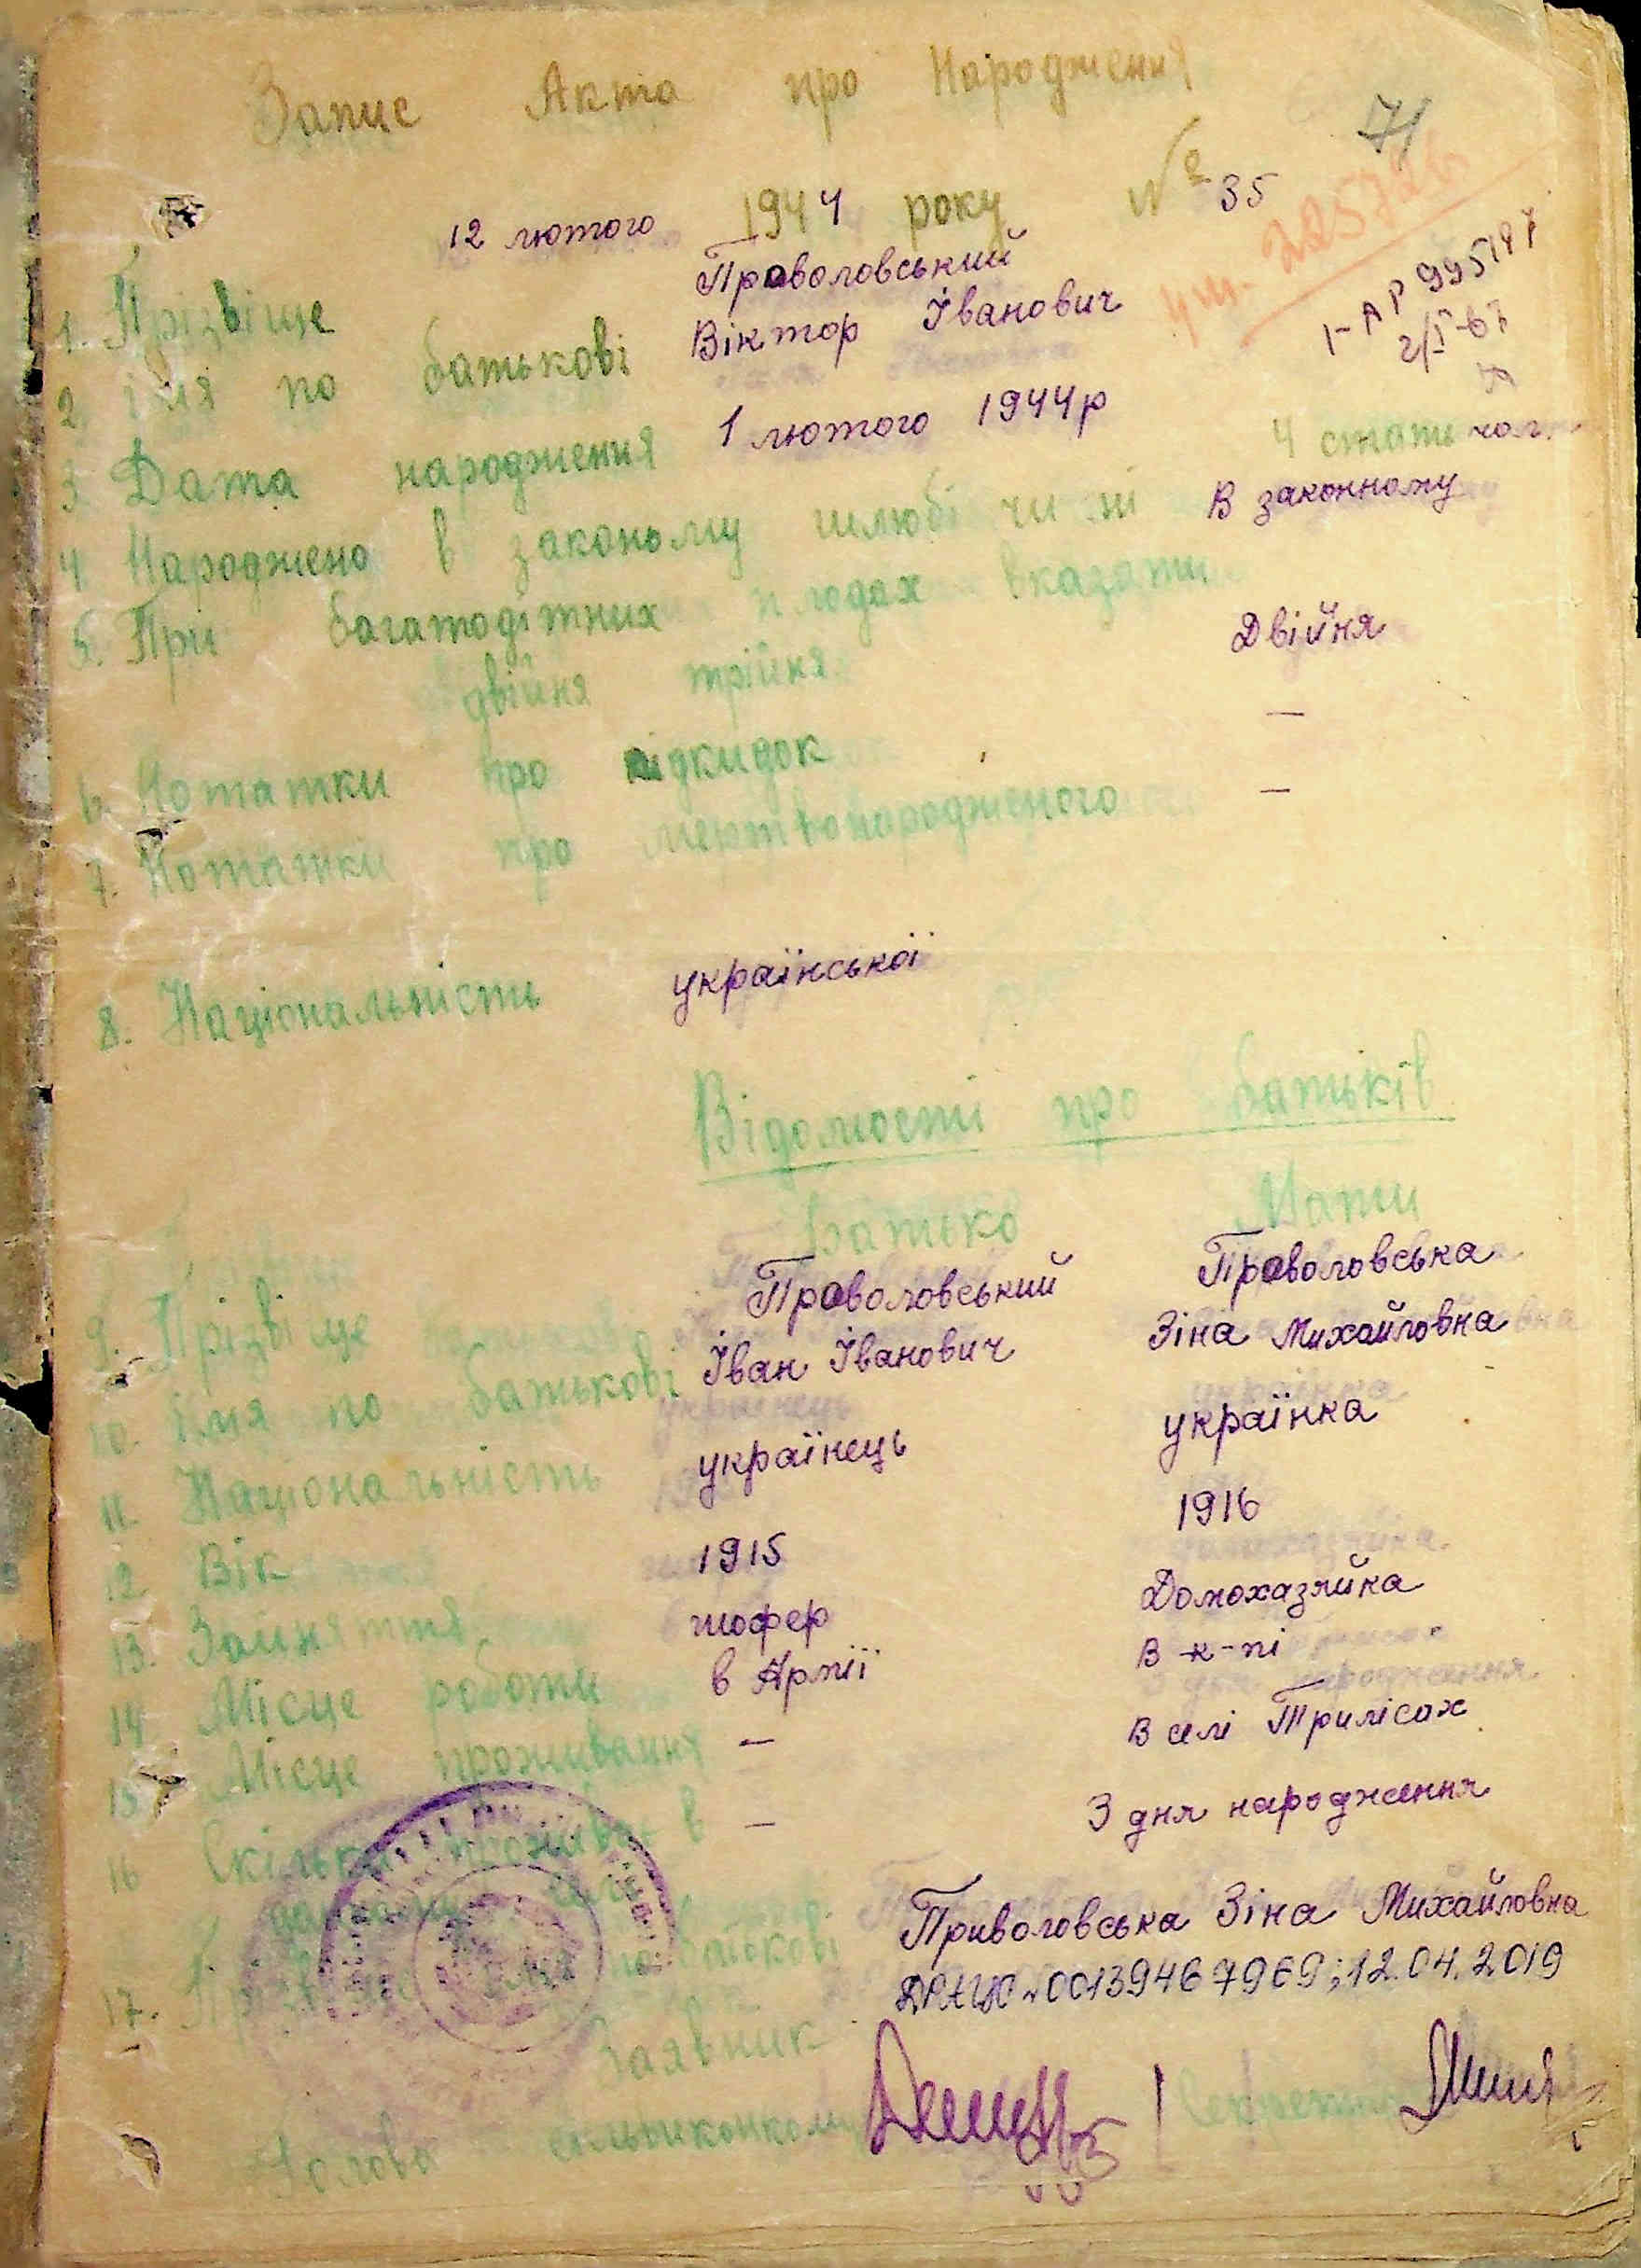 Запис Акта про Народження
71
12 лютого 1944 року № 35
225726
I-АР 995197
1. Прізвіще Проволовський
2. імя по батькові Віктор Іванович
3. Дата народження 1 лютого 1944р 4 стать чол.
4. Народжено в законому шлюбі чи ні В законному
5. При багатодітних плодах вказати
двійня трійня Двійня
6. Нотатки про підкидок —
7. Нотатки про мертвонародженого —
8. Національність української
Відомості про батьків
Батько Мати
9. Прізвіще Проволовський Проволовська
10. імя по батькові Іван Іванович Зіна Михайловна
11. Національність українець українка
12. Вік 1915 1916
13. Зайняття шофер Домохазяйка
14. Місце роботи в Армії в к-пі
15. Місце проживання — В селі Трилісах
16. Скільки проживає в — З дня народження
17. по батькові Приволовська Зіна Михайловна
00139467969; 12.04.2019
Заявник
Голова сільвиконкому Секретар